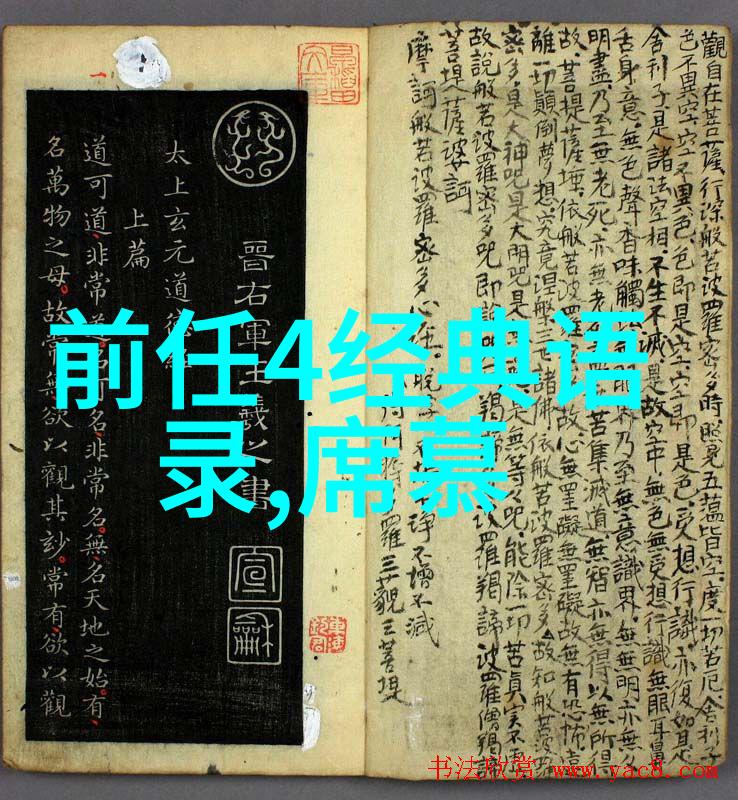 前任4经典语
录,席慕
晉右軍王羲之書
宣龢
太上玄元道德經
上篇
道可道非常道名可名非常名無名天地之始有
名萬物之母故常無欲以觀其玅常有欲以觀
觀自在菩薩行深般若波羅密多時照見五蘊皆空度一切苦厄舍利子
色不異空空不異色色即是空空即是色受想行識亦復如是
舍利子是諸法空相不生不滅是故空中無色無受想行識無眼耳鼻
舌身意無色聲香味觸法無眼界乃至無意識界無無明亦無
明盡乃至無老死亦無老苦集滅道無智亦無得以無所得
故菩提薩埵依般若波羅故心無罣礙無罣礙故無有恐怖遠
離一切顛倒夢想究竟涅槃三世諸佛依般若波羅密多故知般若波
密多是大神咒是大明咒是無等々咒能除一切苦真實不虛
故說般若波羅密多咒即說羯諦波羅羯諦波羅僧羯諦
菩提薩婆訶
摩訶般若波羅密多心經
不增不減
羅三藐三菩提
书法欣赏 www.yac8.com